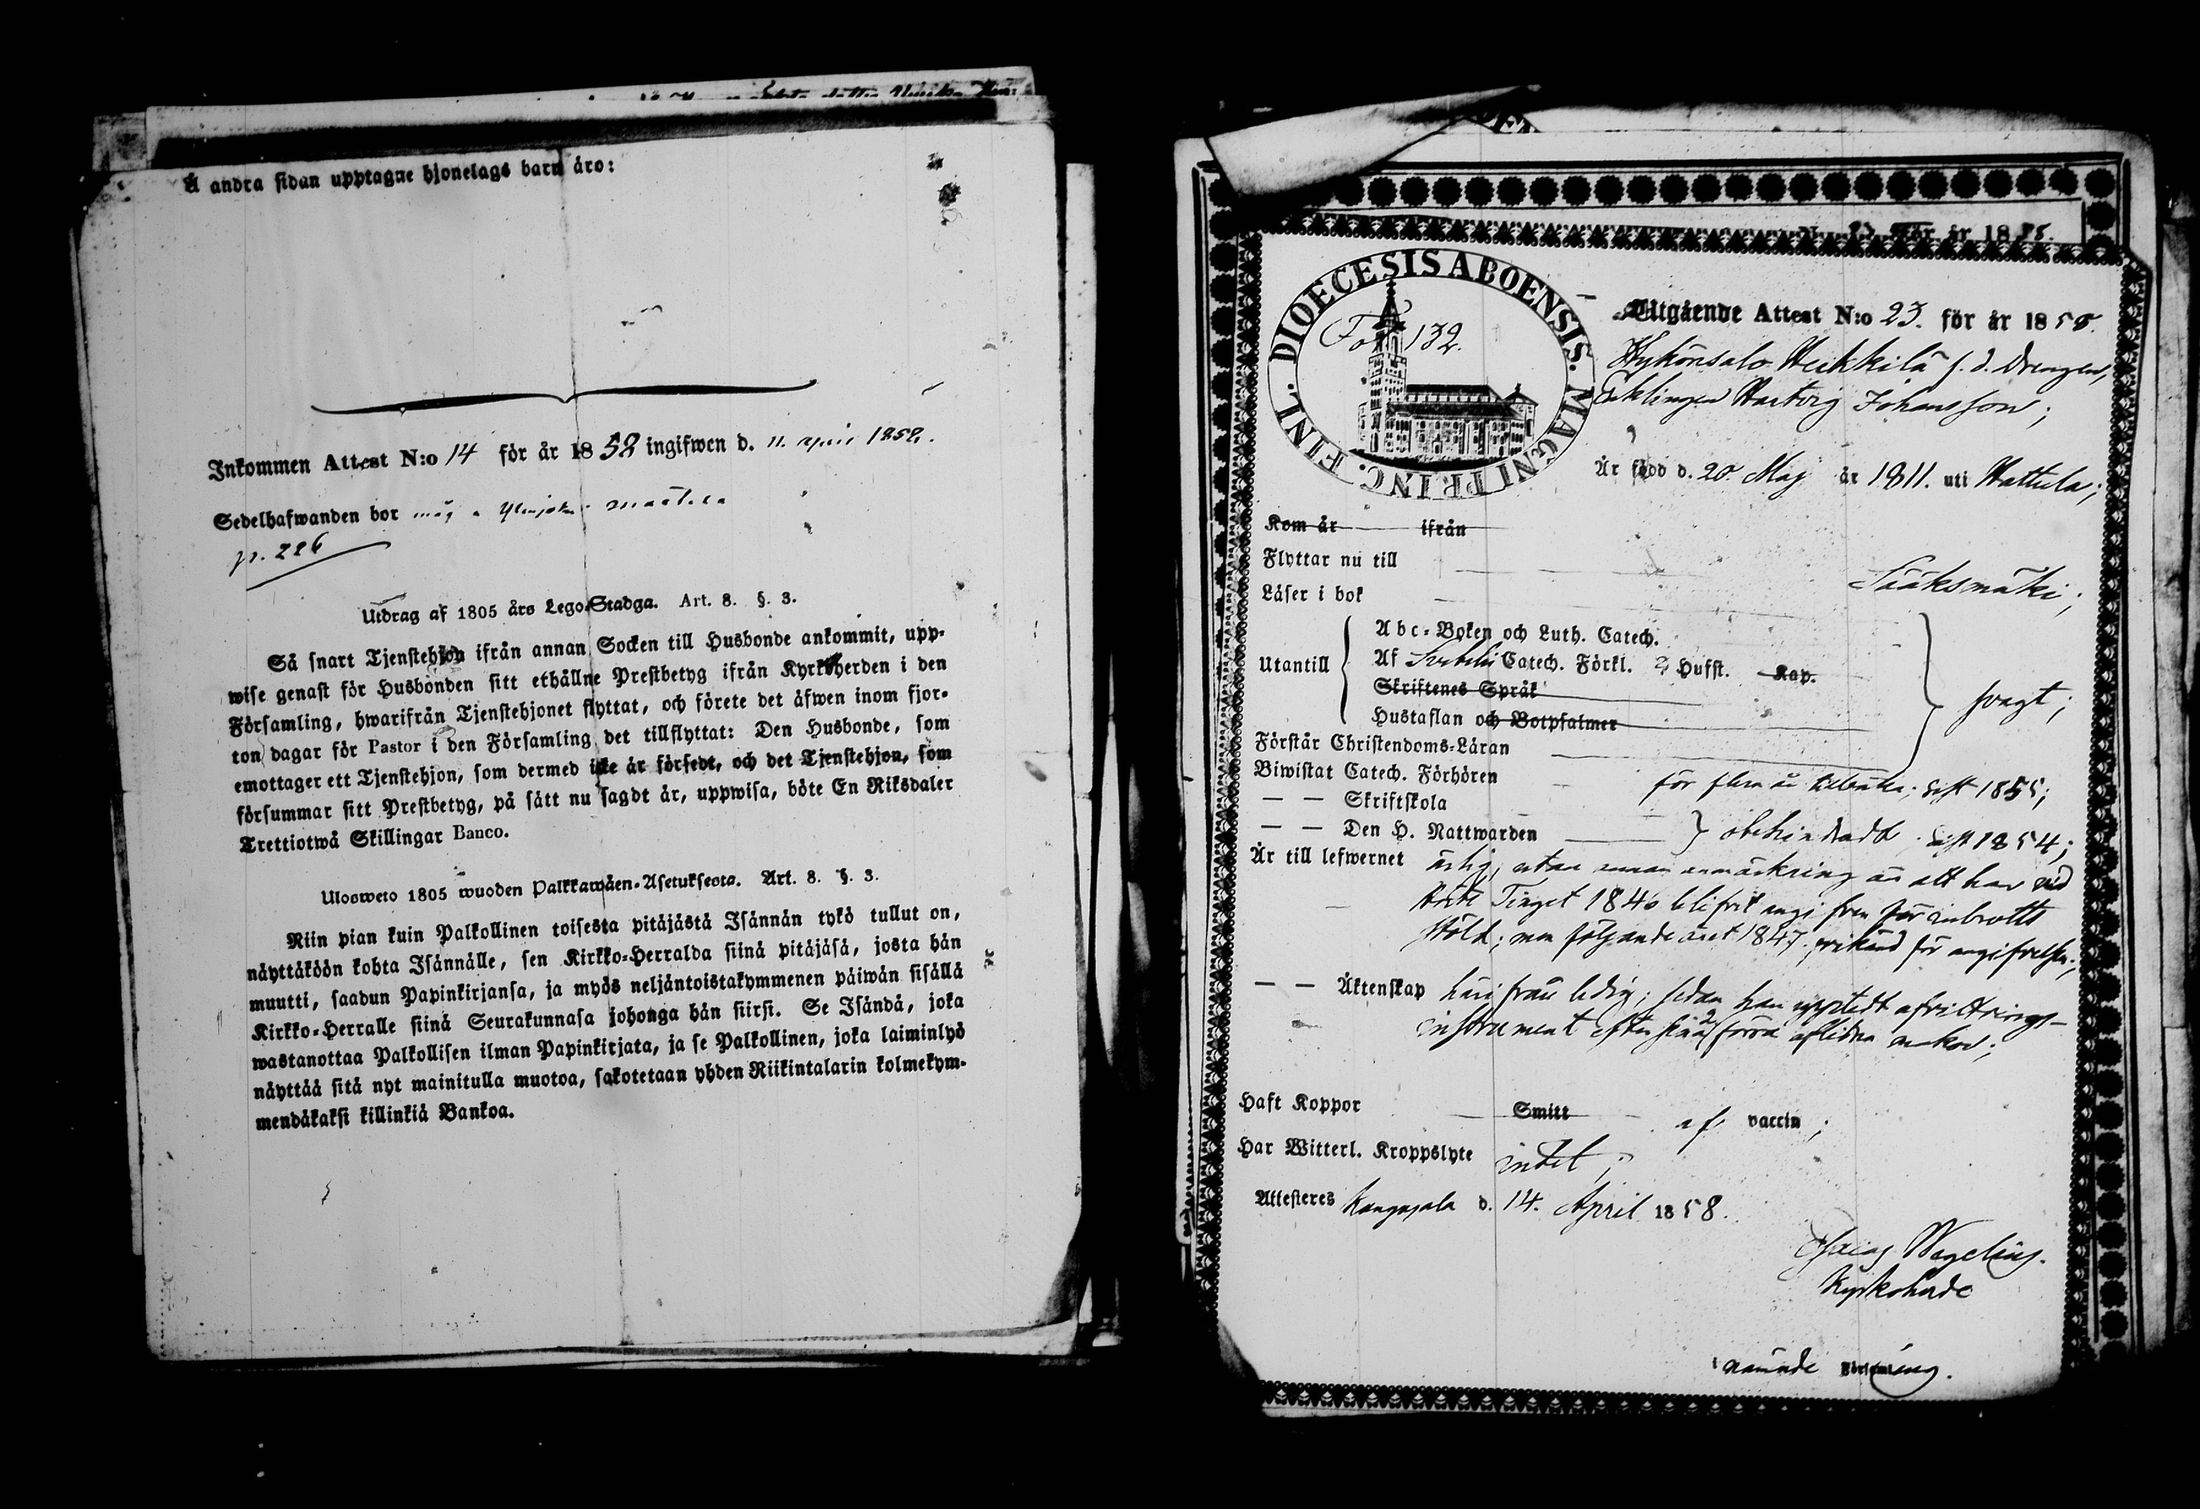 Å andra sidan upptagne hjonelags barn äro:
Inkommen Attest N:o 14 för år 1858 ingifwen d. 11. april 1858.
Sedelhafwanden bor
p. 226
Utdrag af 1805 års Lego-Stadga. Art. 8. §. 3.
Så snart Tjenstehjon ifrån annan Socken till Husbonde ankommit, upp-
wise genast för Husbonden sitt erhållne Prestbetyg ifrån Kyrkoherden i den
Församling, hwarifrån Tjenstehjonet flyttat, och förete det äfwen inom fjor-
ton dagar för Pastor i den Församling det tillflyttat: Den Husbonde, som
emottager ett Tjenstehjon, som dermed icke är försedt, och det Tjenstehjon, som
försummar sitt Prestbetyg, på sätt nu sagdt är, uppwisa, böte En Riksdaler
Trettiotwå Skillingar Banco.
Ulosweto 1805 wuoden Palkkawäen-Asetuksesta. Art. 8. §. 3.
Niin pian kuin Palkollinen toisesta pitäjästä Isännän tykö tullut on,
näyttäköön kohta Isännälle, sen Kirkko-Herralda siinä pitäjäsä, josta hän
muutti, saadun Papinkirjansa, ja myös neljäntoistakymmenen päiwän sisällä
Kirkko-Herralle siinä Seurakunnasa johonga hän siirsi. Se Isändä, joka
wastanottaa Palkollisen ilman Papinkirjata, ja se Palkollinen, joka laiminlyö
näyttää sitä nyt mainitulla muotoa, sakotetaan yhden Riikintalarin kolmekym-
mendäkaksi killinkiä Bankoa.
för år 18
DIOECESIS ABOENSIS. MAGNI PRINC. FINL.
Fol 132.
Utgående Attest N:o 23. för år 185
Heikkilä f. d. Drengen,
Enklingen Hartvig Johansson;
Är född d. 20. Maj år 1811. uti Hattula;
Kom år ifrån
Flyttar nu till Sääksmäki;
Läser i bok
Utantill
Abc-Boken och Luth. Catech.
Af Svebelii Catech. Förkl. 2 Hufst. Kap.
Skriftenes Språk
Hustaflan och Botpsalmer
svagt;
Förstår Christendoms-Läran
Biwistat Catech. Förhören för flera år tillbaka; sist 1855;
— — Skriftskola
— — Den H. Nattwarden obehindradt sist 1854;
Är till lefwernet ärlig, utan annan anmärkning än att han vid
Höste Tinget 1846 blifvit angifven för inbrotts
stöld; men följande året 1847 frikänd för angifvelsen;
— — Äktenskap härifrån ledig; sedan han uppstedt afvittrings-
instrument efter sina 2 förra aflidna makor;
Haft Koppor Smitt af vaccin;
Har Witterl. Kroppslyte intet;
Attesteres Kangasala d. 14. April 1858.
Esaias Wegelius.
Kyrkoherde
Församling.